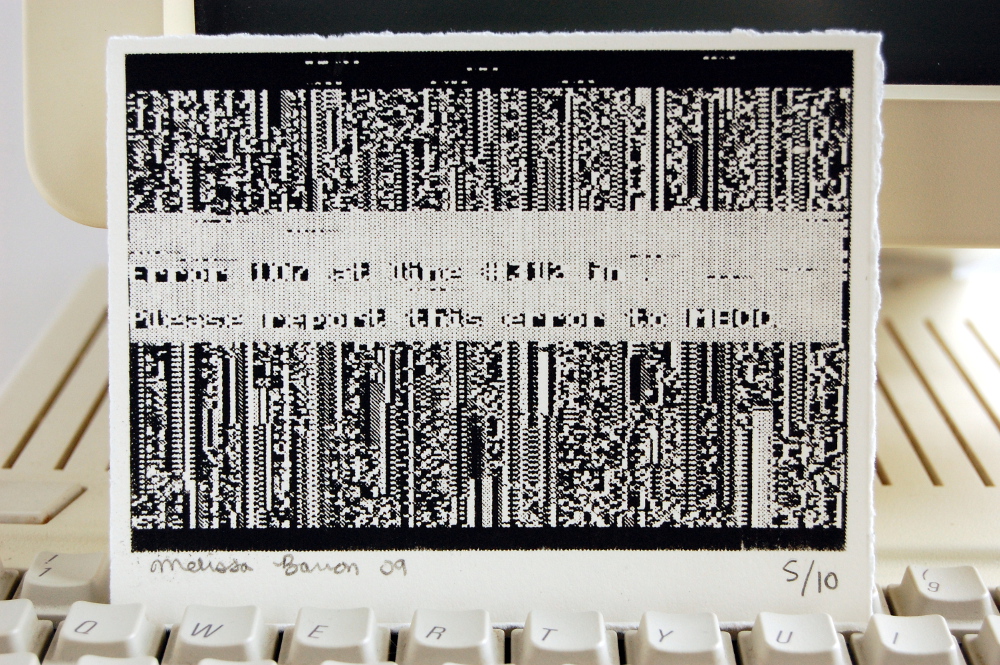 Error 107 at line #3102 in
Please report this error to MECC.
Melissa Barron 09
5/10
Q W E R T Y U I